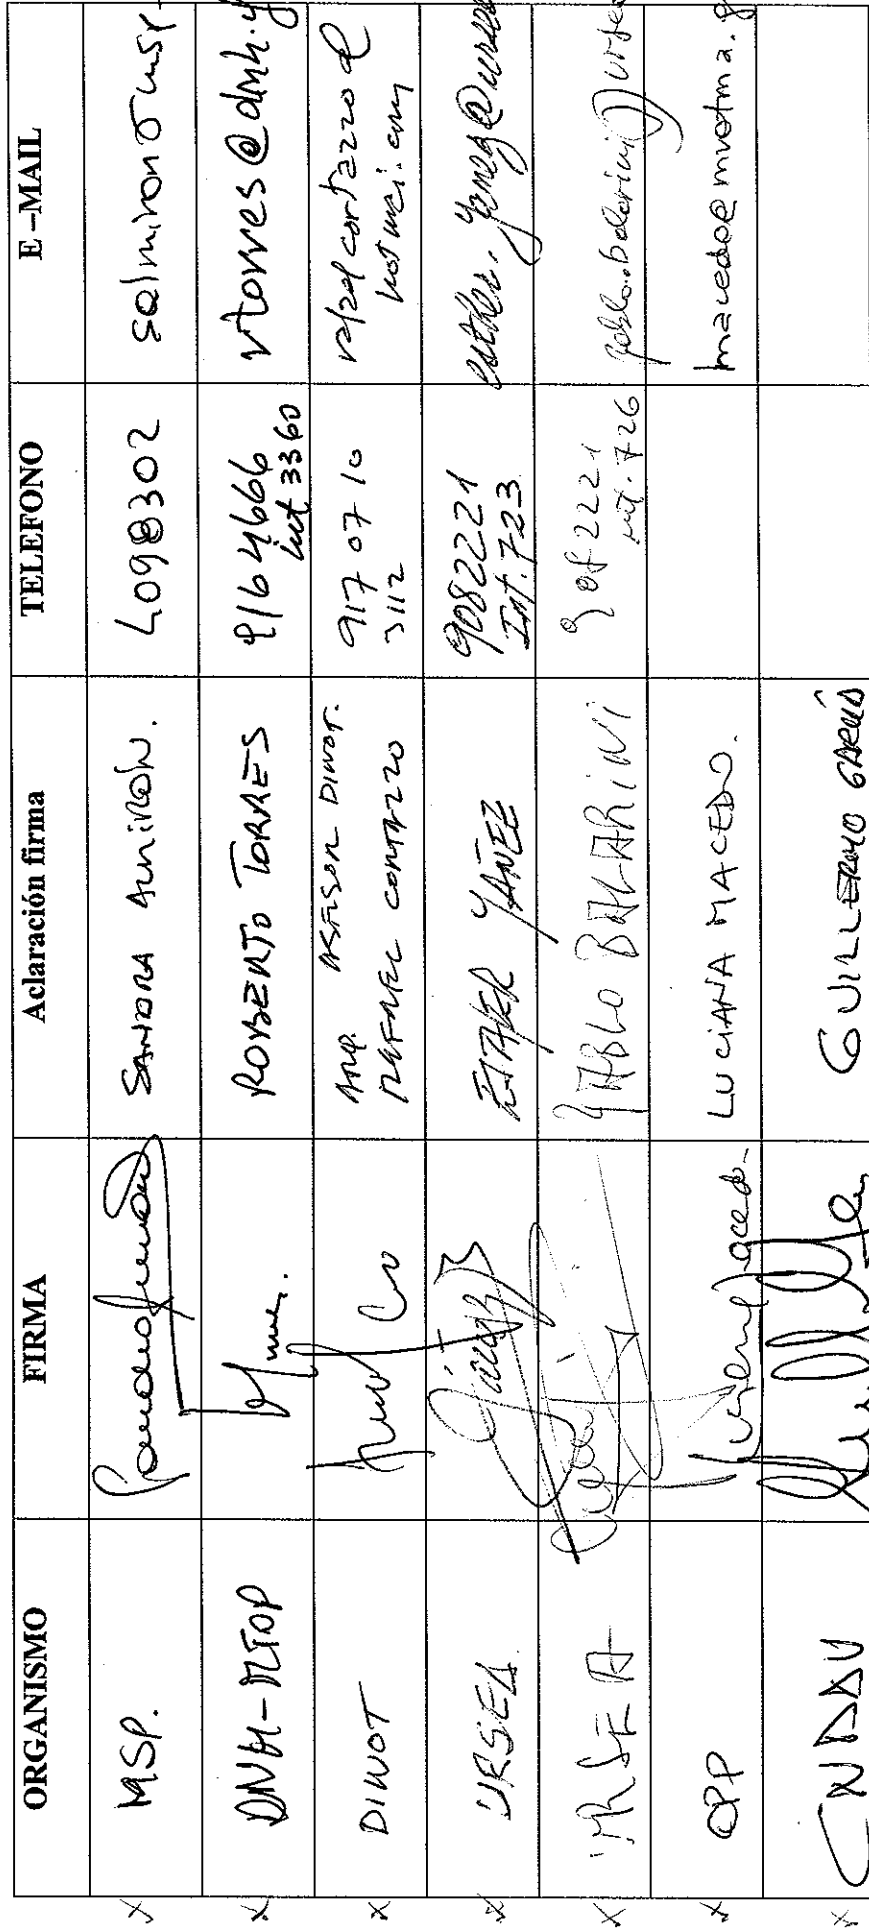 ORGANISMO FIRMA Aclaración firma TELEFONO E-MAIL
x MSP. SANDRA ALMIRÓN. 4098302 salmiron@msp.
x DNH-MTOP ROBERTO TORRES 9164666 rtorres@dnh.g
int 3360
x DINOT ARQ. ASESOR DINOT. 917 07 10
RAFAEL CORTAZZO 3112 rafaelcortazzo@
hotmail.com
x URSEA. ESTHER YAÑEZ 9082221 esther.yanez@ursea
Int. 723
x URSEA PABLO BALARINI 9082221 pablo.balarini@ursea
int. 726
x OPP LUCIANA MACEDO. lmacedo@mvotma.g
x CNDAV GUILLERMO